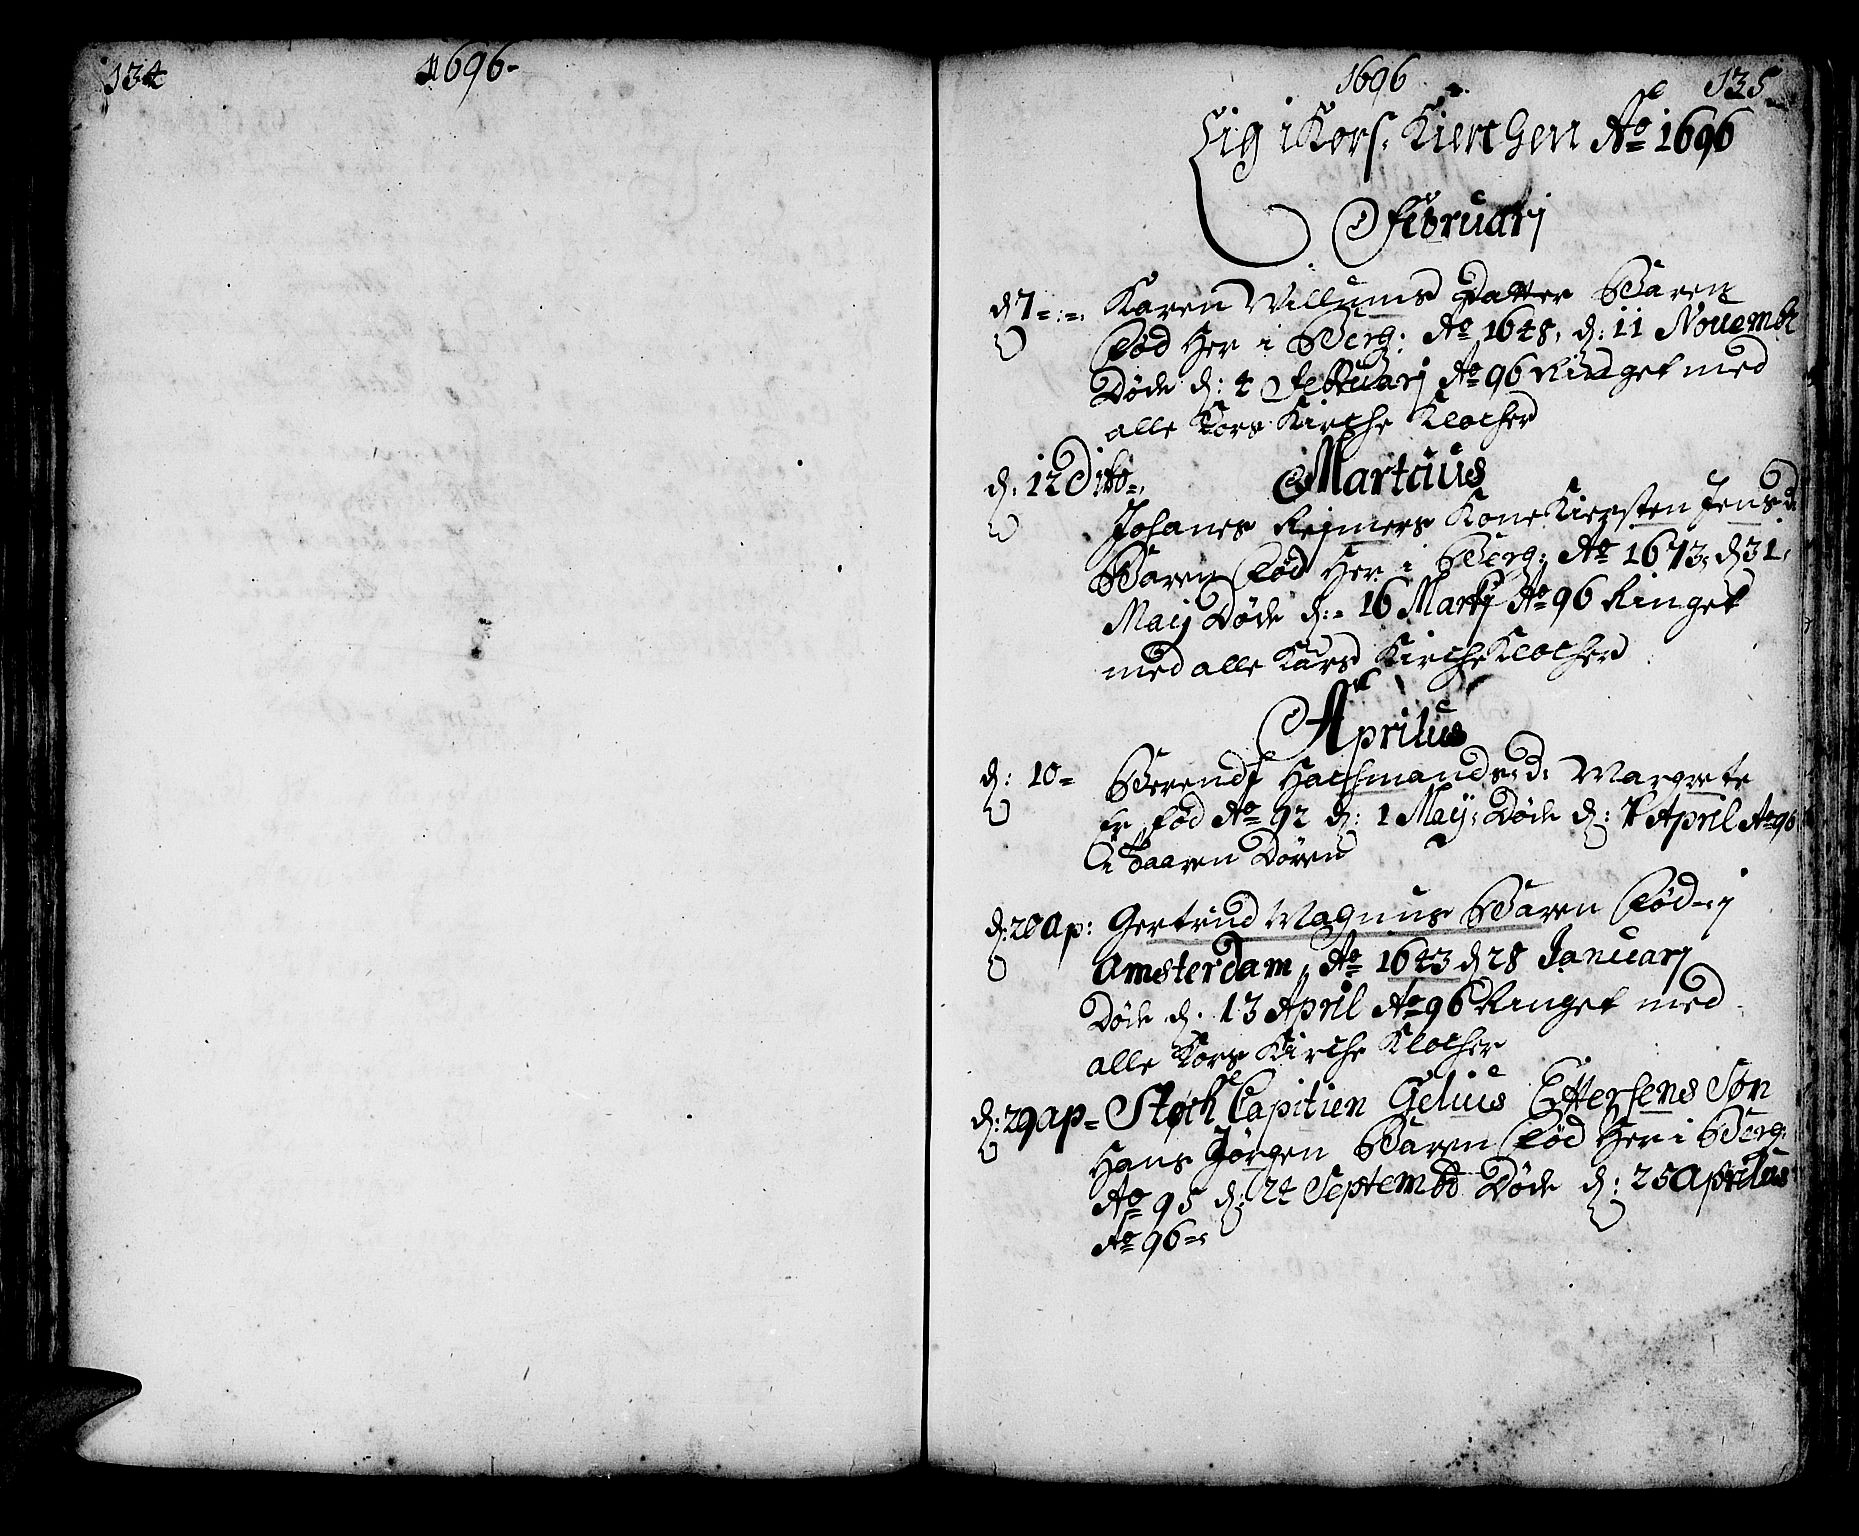 134
1696-
1696
135
Lig i Kors: Kierchen Ao 1696
Februarj
d 7=:=. Karen Willums Datter Baaren
Fød Her i Berg: Ao 1648, d: 11 Nouemb
Døde d: 4 Februarj Ao 96 Ringet med
alle Kors Kirche Klocher
d: 12 Dito=, Martcius
Johanes Rejmers Kone Kiersten Jens d
Baaren Fød Her i Berg: Ao 1673, d 31,
Maij Døde d:= 16 Martij Ao 96 Ringet
med alle Kårs Kirche Klocher
Aprilus
d: 10= Berendt Hachmands: d: Margrete
Er Fød Ao 92 d: 1 Maij: Døde d: April Ao 96
i Taaren Døren
d: 20 Ap: Gertrud Magnus Baaren Fød i
Amsterdam, Ao 1643 d 28 Januarj
Døde d. 13 April Ao 96 Ringet med
alle Kors Kirche Klocher
d: 29 ap= Støch Capitien Gelius Ettersens Søn
Hans Jørgen Baaren Fød Her i Berg:
Ao 95 d: 24 Septembr Døde d: 25 Aprilus
Ao 96=